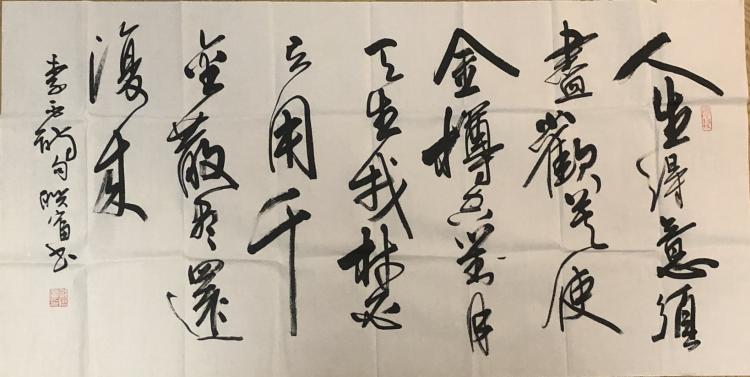 人生得意須
盡歡莫使
金樽空對月
天生我材必
有用千
金散尽還
復来
李白詩句 富书